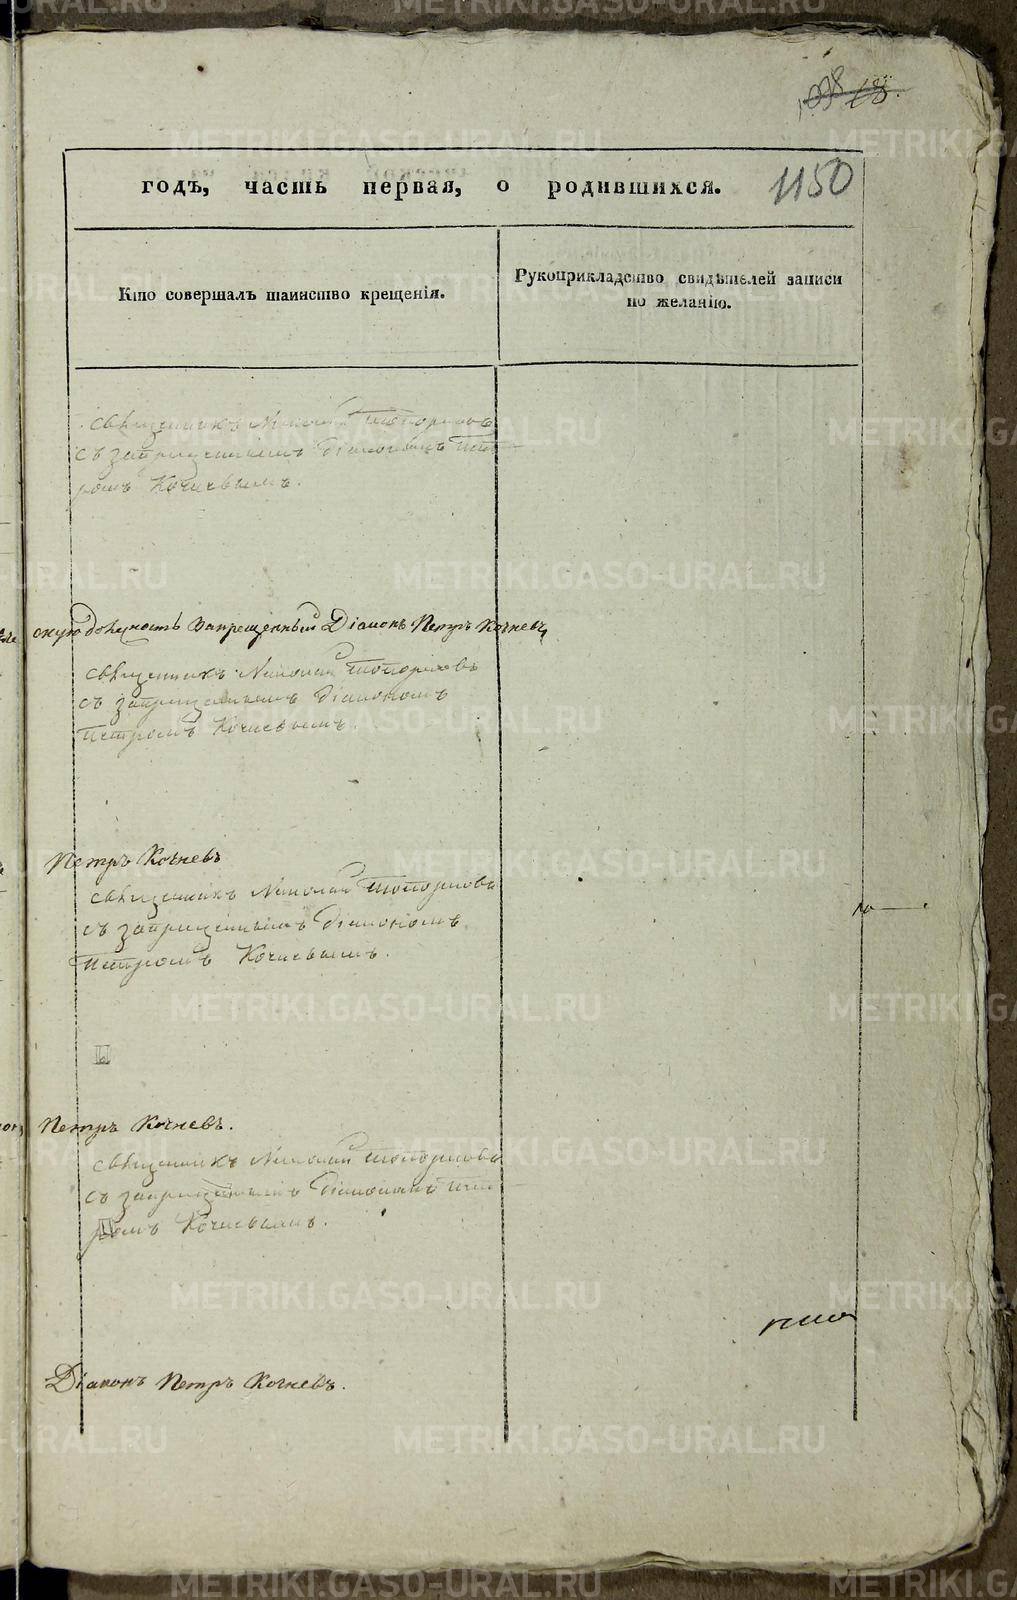 18.
1150
годъ, часть первая, о родившихся.
Кто совершалъ таинство крещенія.
Рукоприкладство свидѣтелей записи
по желанію.
священникъ Николай Топорковъ
съ запрещеннымъ діакономъ Пет-
ромъ Кочневымъ.
скую должность Запрещенный Діаконъ Петръ Кочневъ
священникъ Николай Топорковъ
съ запрещеннымъ діакономъ
Петромъ Кочневымъ.
Петръ Кочневъ
священникъ Николай Топорковъ
съ запрещеннымъ діакономъ
Петромъ Кочневымъ.
Петръ Кочневъ.
священникъ Николай Топорковъ
съ запрещеннымъ діакономъ Пет-
ромъ Кочневымъ.
Діаконъ Петръ Кочневъ.
METRIKI.GASO-URAL.RU